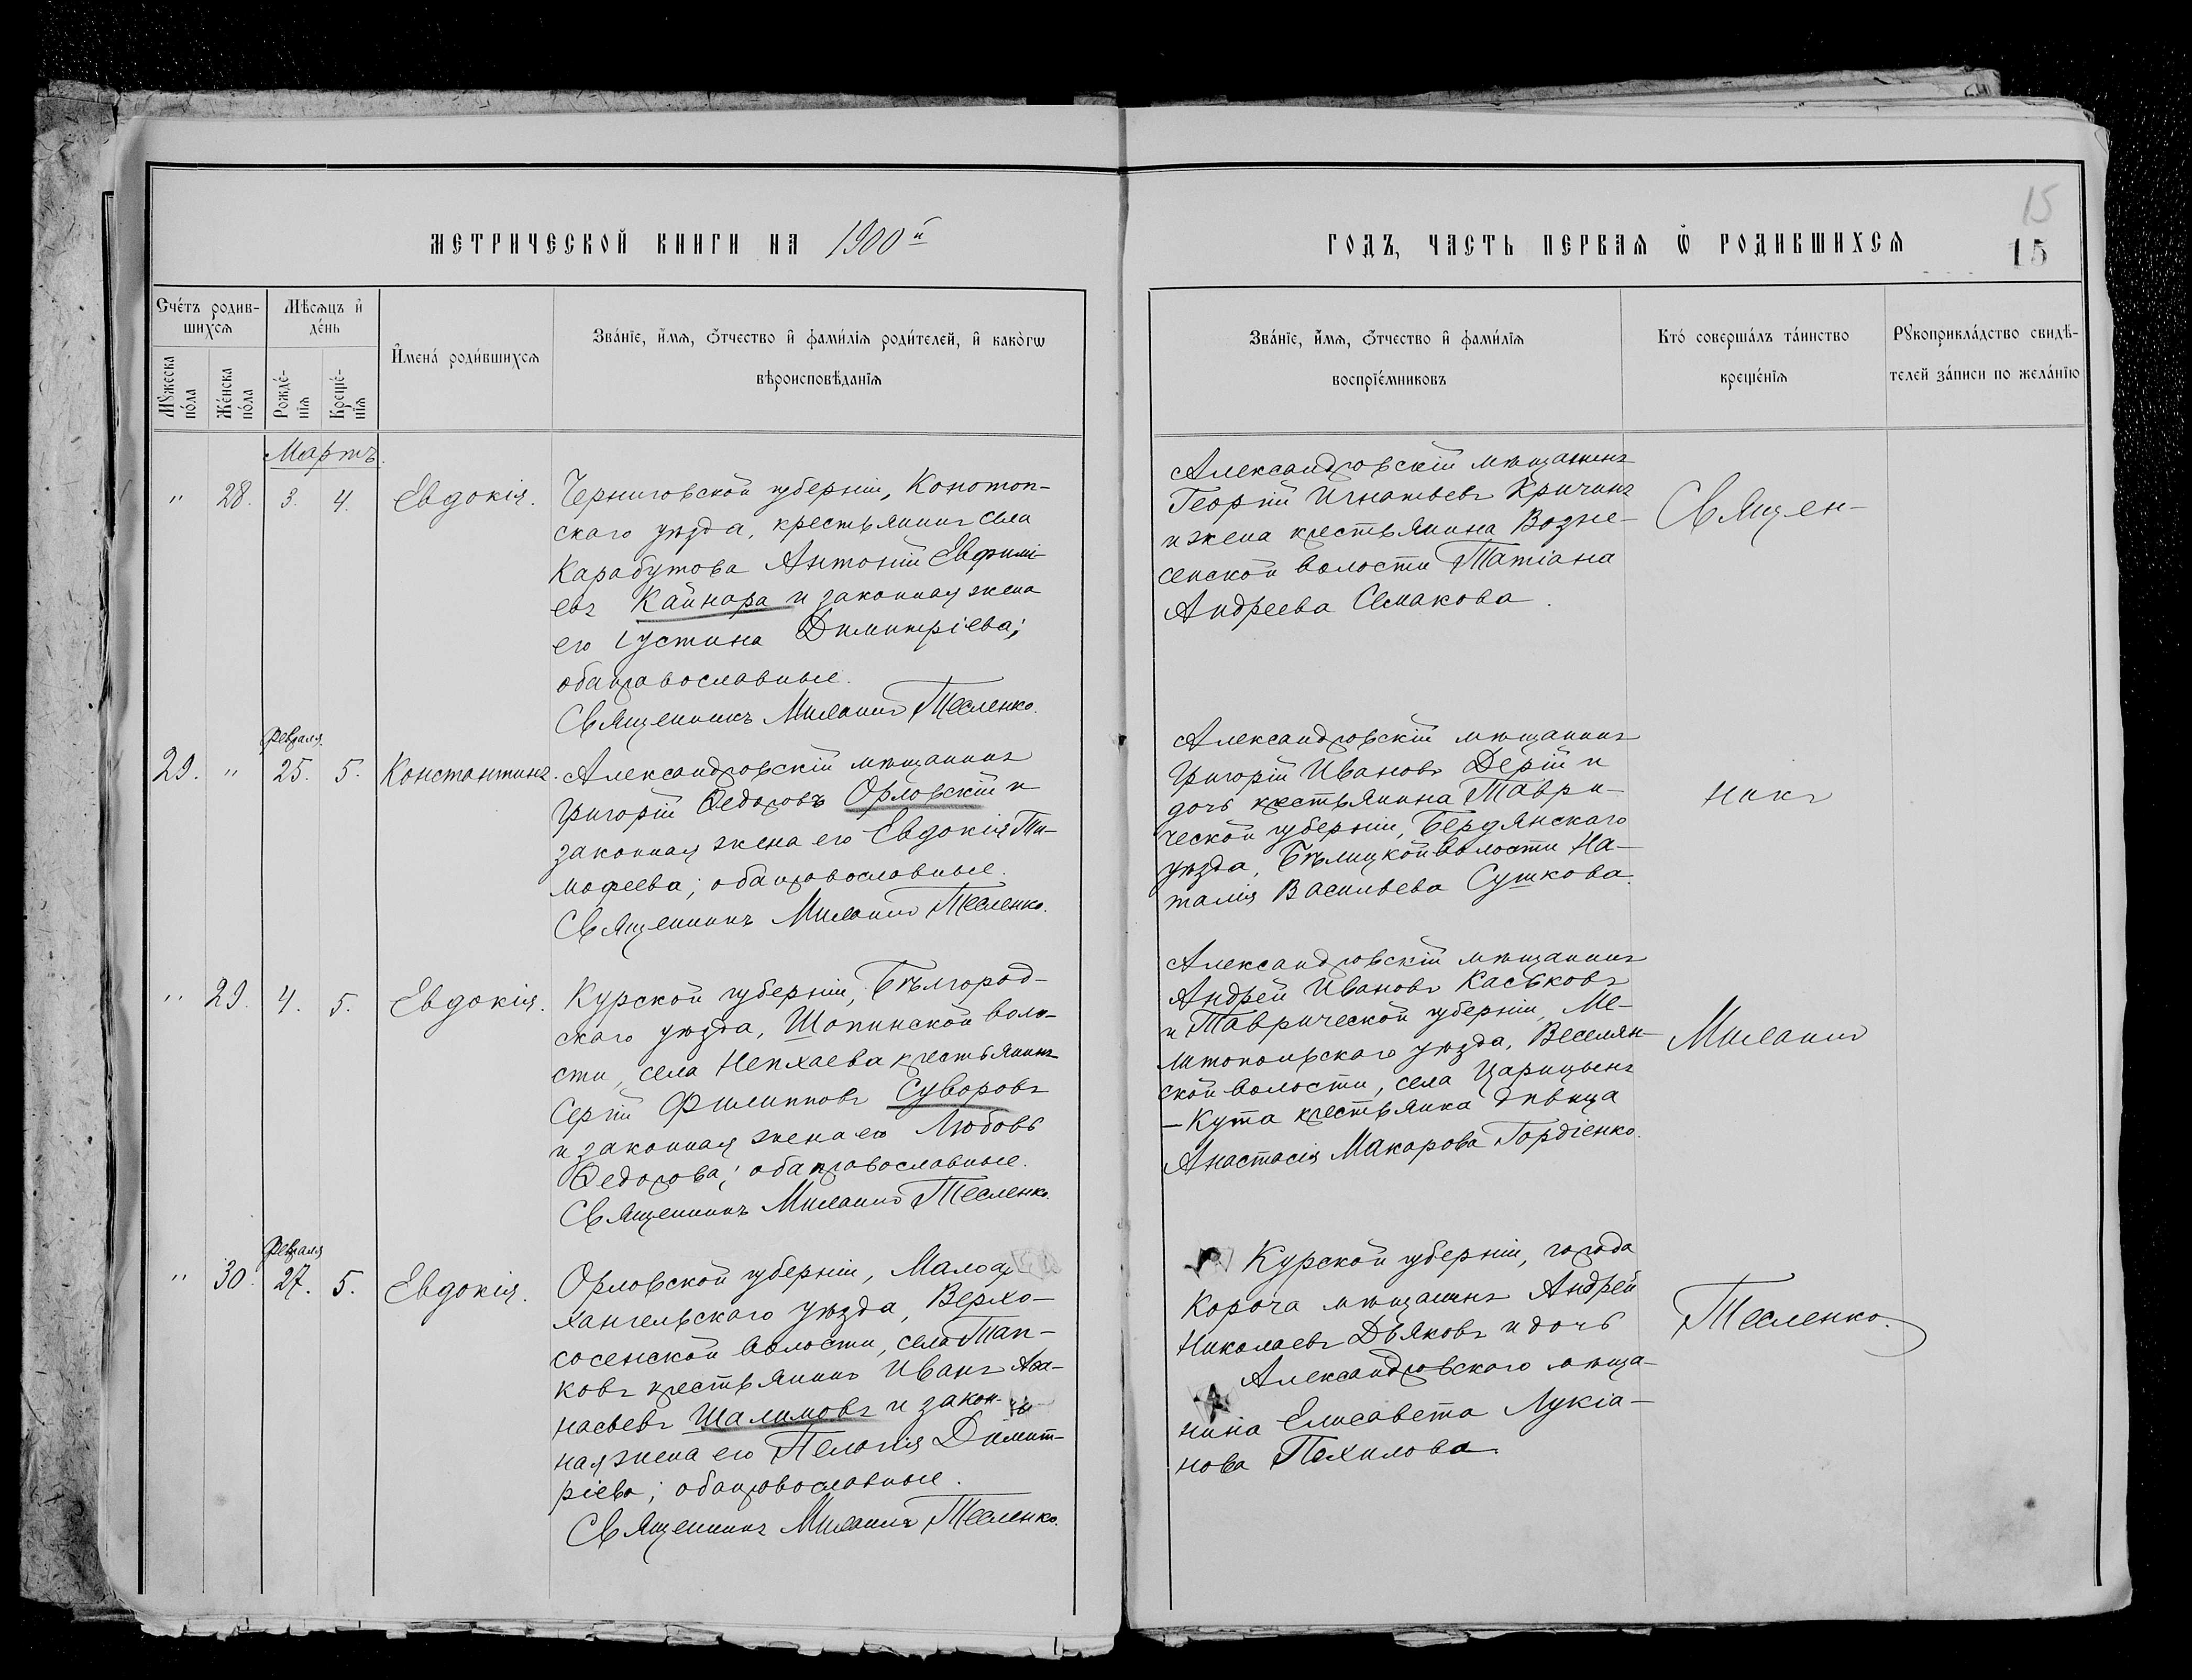 МЕТРИЧЕСКОЙ КНИГИ НА 1900й
ГОДЪ, ЧАСТЬ ПЕРВАЯ Ѿ РОДИВШИХСЯ
15
15
Сче́тъ родив-
шихся
Мѣсяцъ и҆
де́нь
Мꙋжеска
по́ла
Же́нска
по́ла
Рожде́-
нїя
Креще́-
нїя
И҆мена́ роди́вшихся
Зва́нїе, и҆́мя, ѻ҆́тчество и҆ фами́лїя роди́телей, и҆ како́гѡ
вѣроисповѣ́данїя
Зва́нїе, и҆́мя, ѻ҆́тчество и҆ фами́лїя
воспрїе́мниковъ
Кто́ соверша́лъ та́инство
креще́нїя
Рꙋкоприкла́дство свидѣ́-
телей за́писи по жела́нїю
Мартъ.
" 28. 3. 4. Евдокія.
Черниговской губерніи, Конотоп-
скаго уѣзда, крестьянинъ села
Карабутова Антоній Евфимі-
евъ Кайнара и законная жена
его Іустина Димитріева;
оба православные.
Священникъ Михаилъ Тесленко.
Александровскій мѣщанинъ
Георгій Игнатьевъ Кричинъ
и жена крестьянина Возне-
сенской волости Татіана
Андреева Семакова.
Священ-
Февраля
29. " 25. 5. Константинъ.
Александровскій мѣщанинъ
Григорій Ѳедоровъ Орловскій и
законная жена его Евдокія Ти-
моѳеева; оба православные.
Священникъ Михаилъ Тесленко.
Александровскій мѣщанинъ
Григорій Ивановъ Дерій и
дочь крестьянина Таври-
ческой губерніи, Бердянскаго
уѣзда, Бѣлицкой волости На-
талія Васильева Сушкова.
никъ
" 29. 4. 5. Евдокія.
Курской губерніи, Бѣлгород-
скаго уѣзда, Шопинской воло-
сти, села Непхаева крестьянинъ
Сергій Филипповъ Суворовъ
и законная жена его Любовь
Ѳедорова; оба православные.
Священникъ Михаилъ Тесленко.
Александровскій мѣщанинъ
Андрей Ивановъ Каськовъ
и Таврической губерніи, Ме-
литопольскаго уѣзда, Веселян-
ской волости, села Царицынъ
-Кута крестьянка дѣвица
Анастасія Макарова Гордіенко.
Михаилъ
Февраля
" 30. 27. 5. Евдокія.
Орловской губерніи, Малоар
хангельскаго уѣзда, Верхо-
сосенской волости, села Тап-
ковъ крестьянинъ Иванъ Аѳа-
насьевъ Шалимовъ и закон-
ная жена его Пелагія Димит-
ріева; оба православные.
Священникъ Михаилъ Тесленко.
Курской губерніи, города
Короча мѣщанинъ Андрей
Николаевъ Дьяковъ и дочь
Александровскаго мѣща-
нина Елисавета Лукіа-
нова Похилова.
Тесленко.